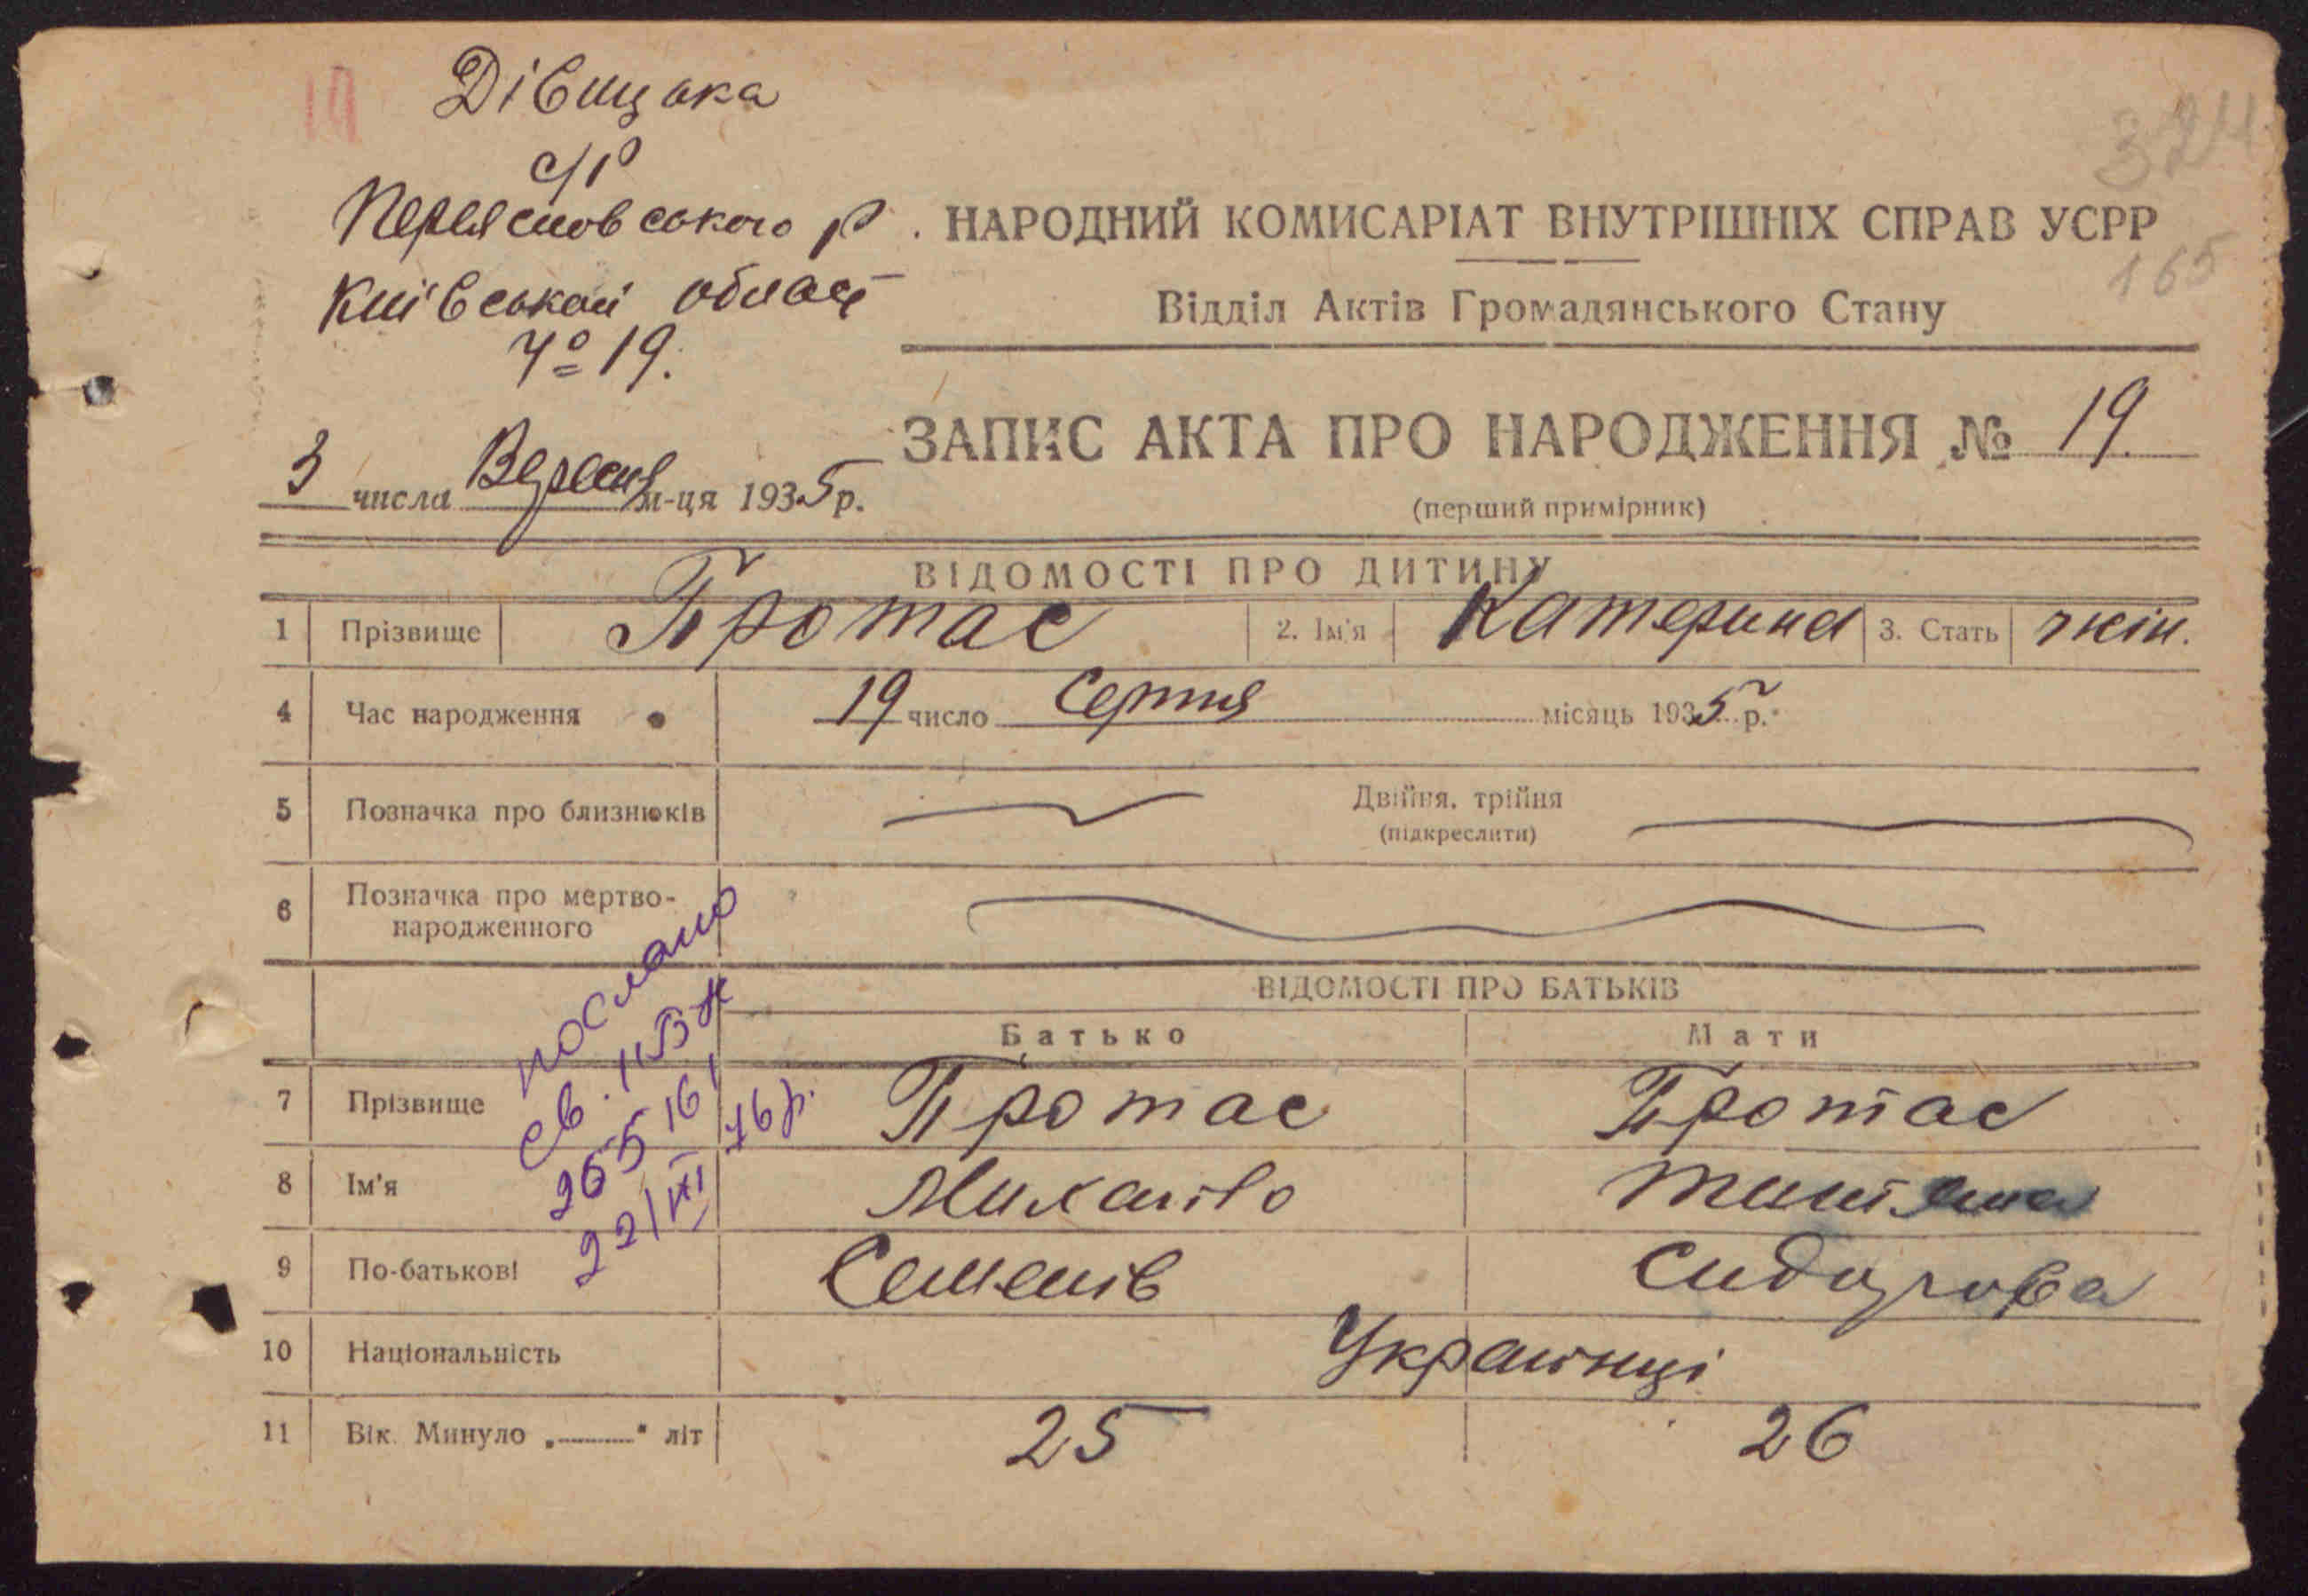 19
Дівицька
с/р
Переясловського р.
Київської област
Ч° 19.
324
165
НАРОДНИЙ КОМИСАРІАТ ВНУТРІШНІХ СПРАВ УСРР
Відділ Актів Громадянського Стану
ЗАПИС АКТА ПРО НАРОДЖЕННЯ № 19.
(перший примірник)
3 числа Вересня м-ця 1935 р.
ВІДОМОСТІ ПРО ДИТИНУ
1 Прізвище Протас 2. Ім'я Катерина 3. Стать жін.
4 Час народження 19 число Серпня місяць 1935 р.
5 Позначка про близнюків Двійня, трійня
(підкреслити)
6 Позначка про мертво-
народженного
ВІДОМОСТІ ПРО БАТЬКІВ
Батько Мати
7 Прізвище Протас Протас
8 Ім'я Михайло Титяна
9 По-батькові Семенів Сидорова
10 Національність Українці
11 Вік. Минуло „ “ літ 25 26
послано
св.
22/III 76 р.